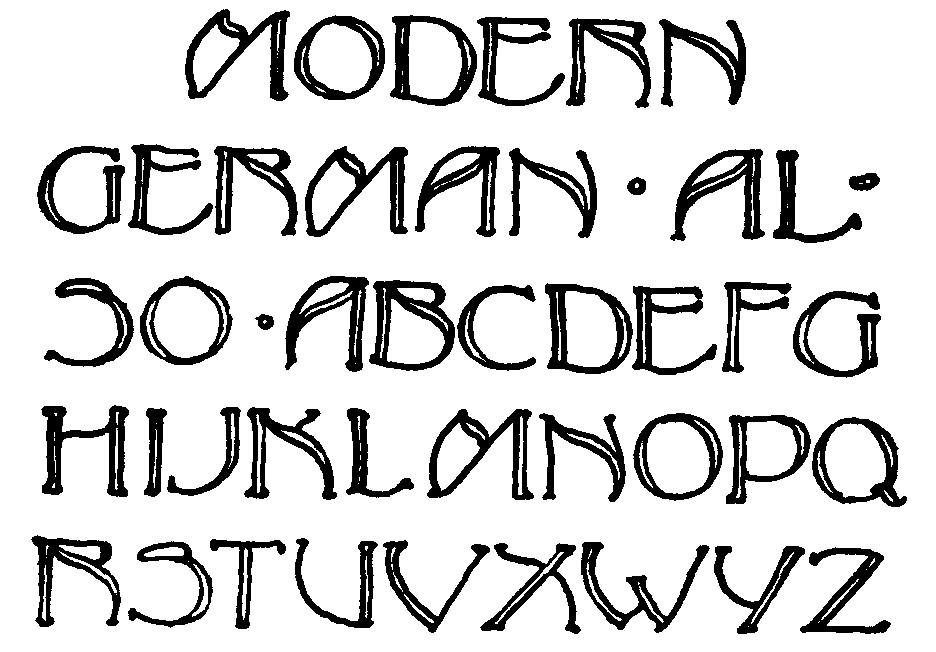 MODERN
GERMAN · AL-
SO · ABCDEFG
HIJKLMNOPQ
RSTUVXWYZ